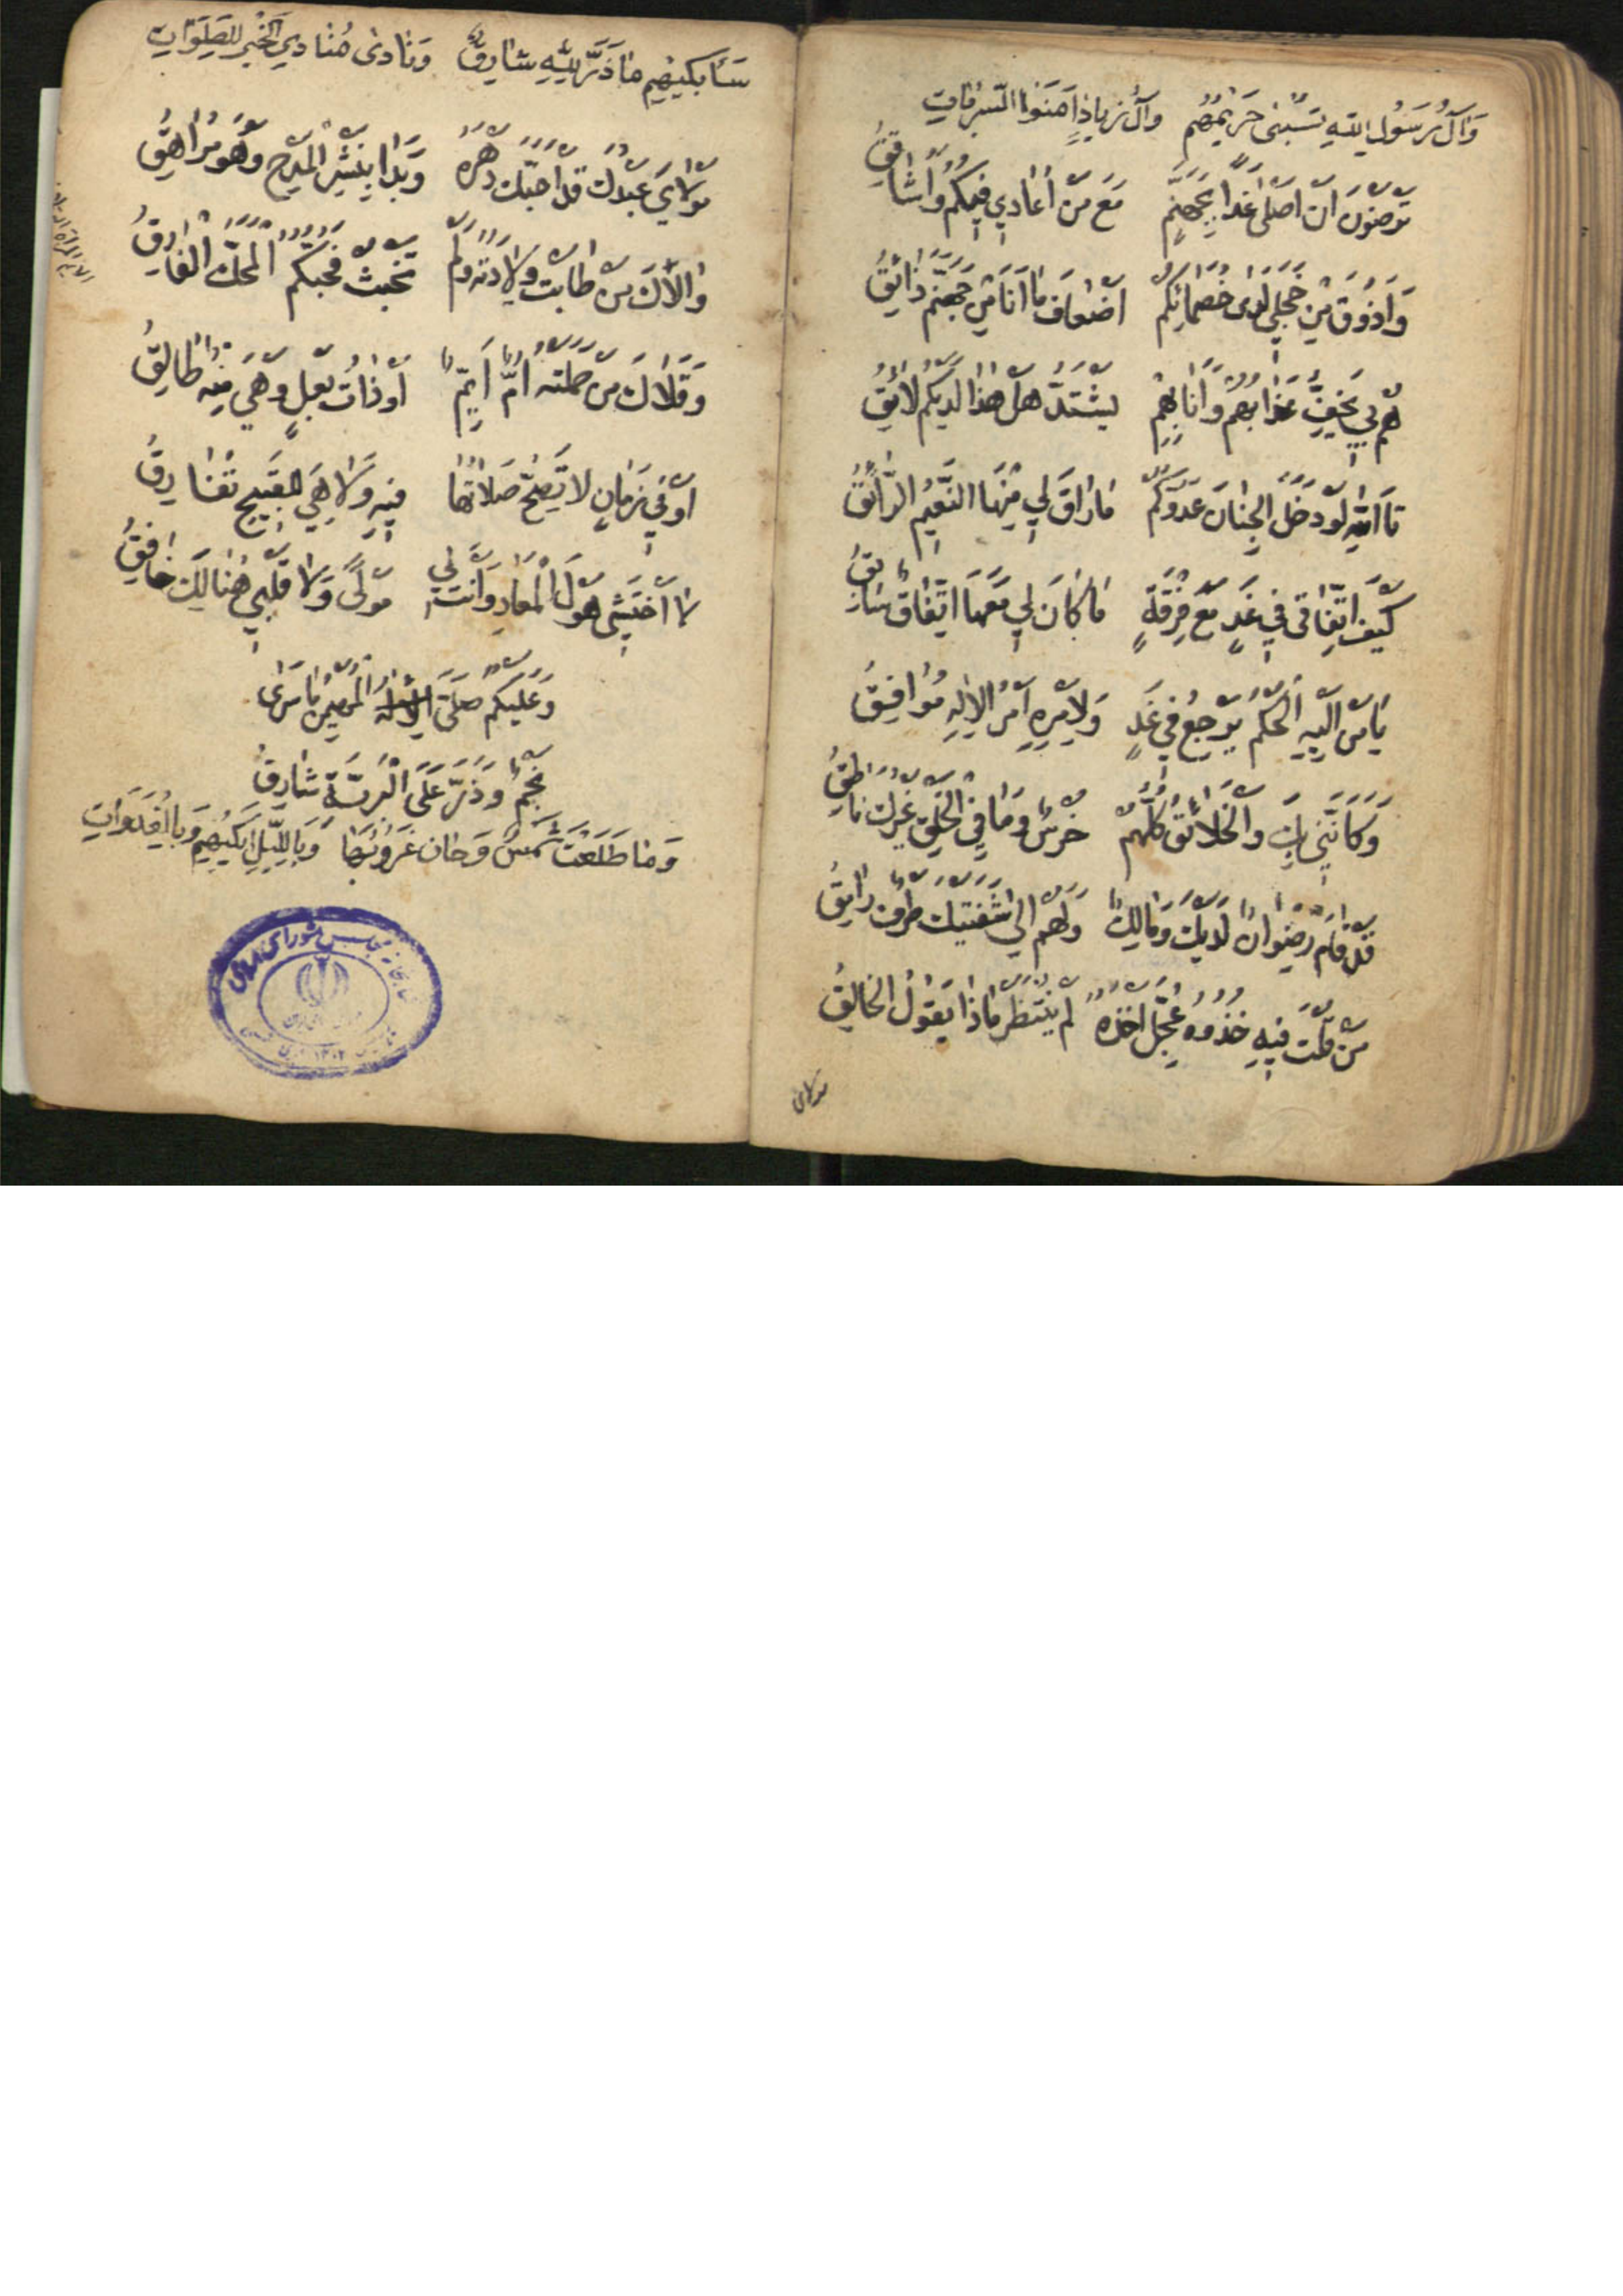 وَآلُ رَسُولِ اللّٰهِ تُسْبٰى حَرِيْمُهُمْ وَآلُ زِيادٍ اٰمَنُوا السَّرَبَاتِ
تَرْضَوْنَ اَنْ اَصْلٰى غَدًا بِجَهَنَّمَ مَعَ مَنْ اُعٰادِي فِيكُمْ وَاُشٰاقِقُ
وَاَذُوْقَ مِنْ خَجَلِي لَدٰى خُصَمٰائِكُمْ اَضْعٰافَ مٰا اَنَا مِنْ جَهَنَّمَ ذٰائِقُ
هُمْ بِي يَخِفُّ عَذٰابُهُمْ وَاَنَا بِهِمْ يَشْتَدُّ هَلْ هٰذٰا لَدَيْكُمْ لٰائِقُ
تَاللّٰهِ لَوْ دَخَلَ الْجِنٰانَ عَدُوُّكُمْ مٰا رٰاقَ لِي مِنْهَا النَّعِيْمُ الرّٰائِقُ
كَيْفَ اتِّفٰاقِي فِي غَدٍ مَعْ فِرْقَةٍ مٰا كٰانَ لِي مَعَهَا اتِّفٰاقٌ سٰابِقُ
يٰا مَنْ اِلَيْهِ الْحُكْمُ يَرْجِعُ فِي غَدٍ وَلِاَمْرِهِ اَمْرُ الْاِلٰهِ مُوٰافِقُ
وَكَاَنَّنِي بِكَ وَالْخَلٰائِقُ كُلُّهُمْ خُرْسٌ وَمٰا فِي الْخَلْقِ غَيْرُكَ نٰاطِقُ
قَدْ قٰامَ رِضْوٰانٌ لَدَيْكَ وَمٰالِكٌ وَلَهُمْ اِلٰى شَفَتَيْكَ طَرْفٌ رٰامِقُ
مَنْ قُلْتَ فِيْهِ خُذُوْهُ عُجِّلَ اَخْذُهُ لَمْ يَنْتَظِرْ مٰاذٰا يَقُوْلُ الْخٰالِقُ
سَأَبْكِيْهِمِ مٰا ذَرَّ لِلّٰهِ شٰارِقٌ وَنٰادٰى مُنٰادِي الْخَيْرِ لِلصَّلَوٰاتِ
مَوْلٰايَ عَبْدُكَ قَدْ اَحَبَّكَ دَهْرَهُ وَبَدٰا بِنَشْرِ الْمَدْحِ وَهْوَ مُرٰاهِقُ
وَالْاٰنَ مَنْ طٰابَتْ وِلٰادَتُهُ وَلَمْ تَخْبُثْ فَحُبُّكُمُ الْمِحَكُّ الْفٰارِقُ
وَقَلٰاكَ مَنْ حَمَلَتْهُ اُمٌّ اَيِّمٌ اَوْ ذٰاتُ بَعْلٍ وَهْيَ مِنْهُ طٰالِقُ
اَوْ فِي زَمٰانٍ لٰا تَصِحُّ صَلٰاتُهٰا فِيْهِ وَلٰا هِيَ لِلْقَبِيْحِ تُفٰارِقُ
لٰا اَخْتَشِي هَوْلَ الْمَعٰادِ وَاَنْتَ لِي مَوْلًى وَلٰا قَلْبِي هُنٰالِكَ خٰافِقُ
وَعَلَيْكُمُ صَلَّى الْمُهَيْمِنُ مٰا سَرٰى
نَجْمٌ وَذَرَّ عَلَى الْبَرِيَّةِ شٰارِقُ
وَمٰا طَلَعَتْ شَمْسٌ وَحٰانَ غُرُوْبُهٰا وَبِاللَّيْلِ اَبْكِيْهِمْ وَبِالْغَدَوٰاتِ